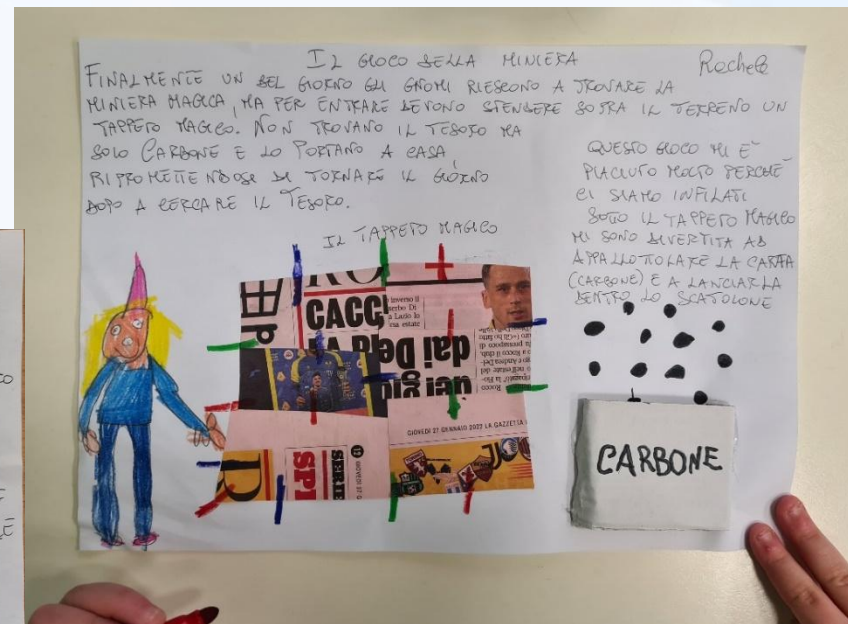 IL GIOCO DELLA MINIERA
Rachele
FINALMENTE UN BEL GIORNO GLI GNOMI RIESCONO A TROVARE LA
MINIERA MAGICA, MA PER ENTRARE DEVONO STENDERE SOPRA IL TERRENO UN
TAPPETO MAGICO. NON TROVANO IL TESORO MA
SOLO CARBONE E LO PORTANO A CASA,
RIPROMETTENDOSI DI TORNARE IL GIORNO
DOPO A CERCARE IL TESORO.
QUESTO GIOCO MI E'
PIACIUTO MOLTO PERCHE'
CI SIAMO INFILATI
SOTTO IL TAPPETO MAGICO
MI SONO DIVERTITA AD
APPALLOTTOLARE LA CARTA
(CARBONE) E A LANCIARLA
DENTRO LO SCATOLONE
IL TAPPETO MAGICO
CACC
dai
Rocco
GIOVEDÌ 27 GENNAIO 2022 LA GAZZETTA
SERIE
SPI
R
CARBONE